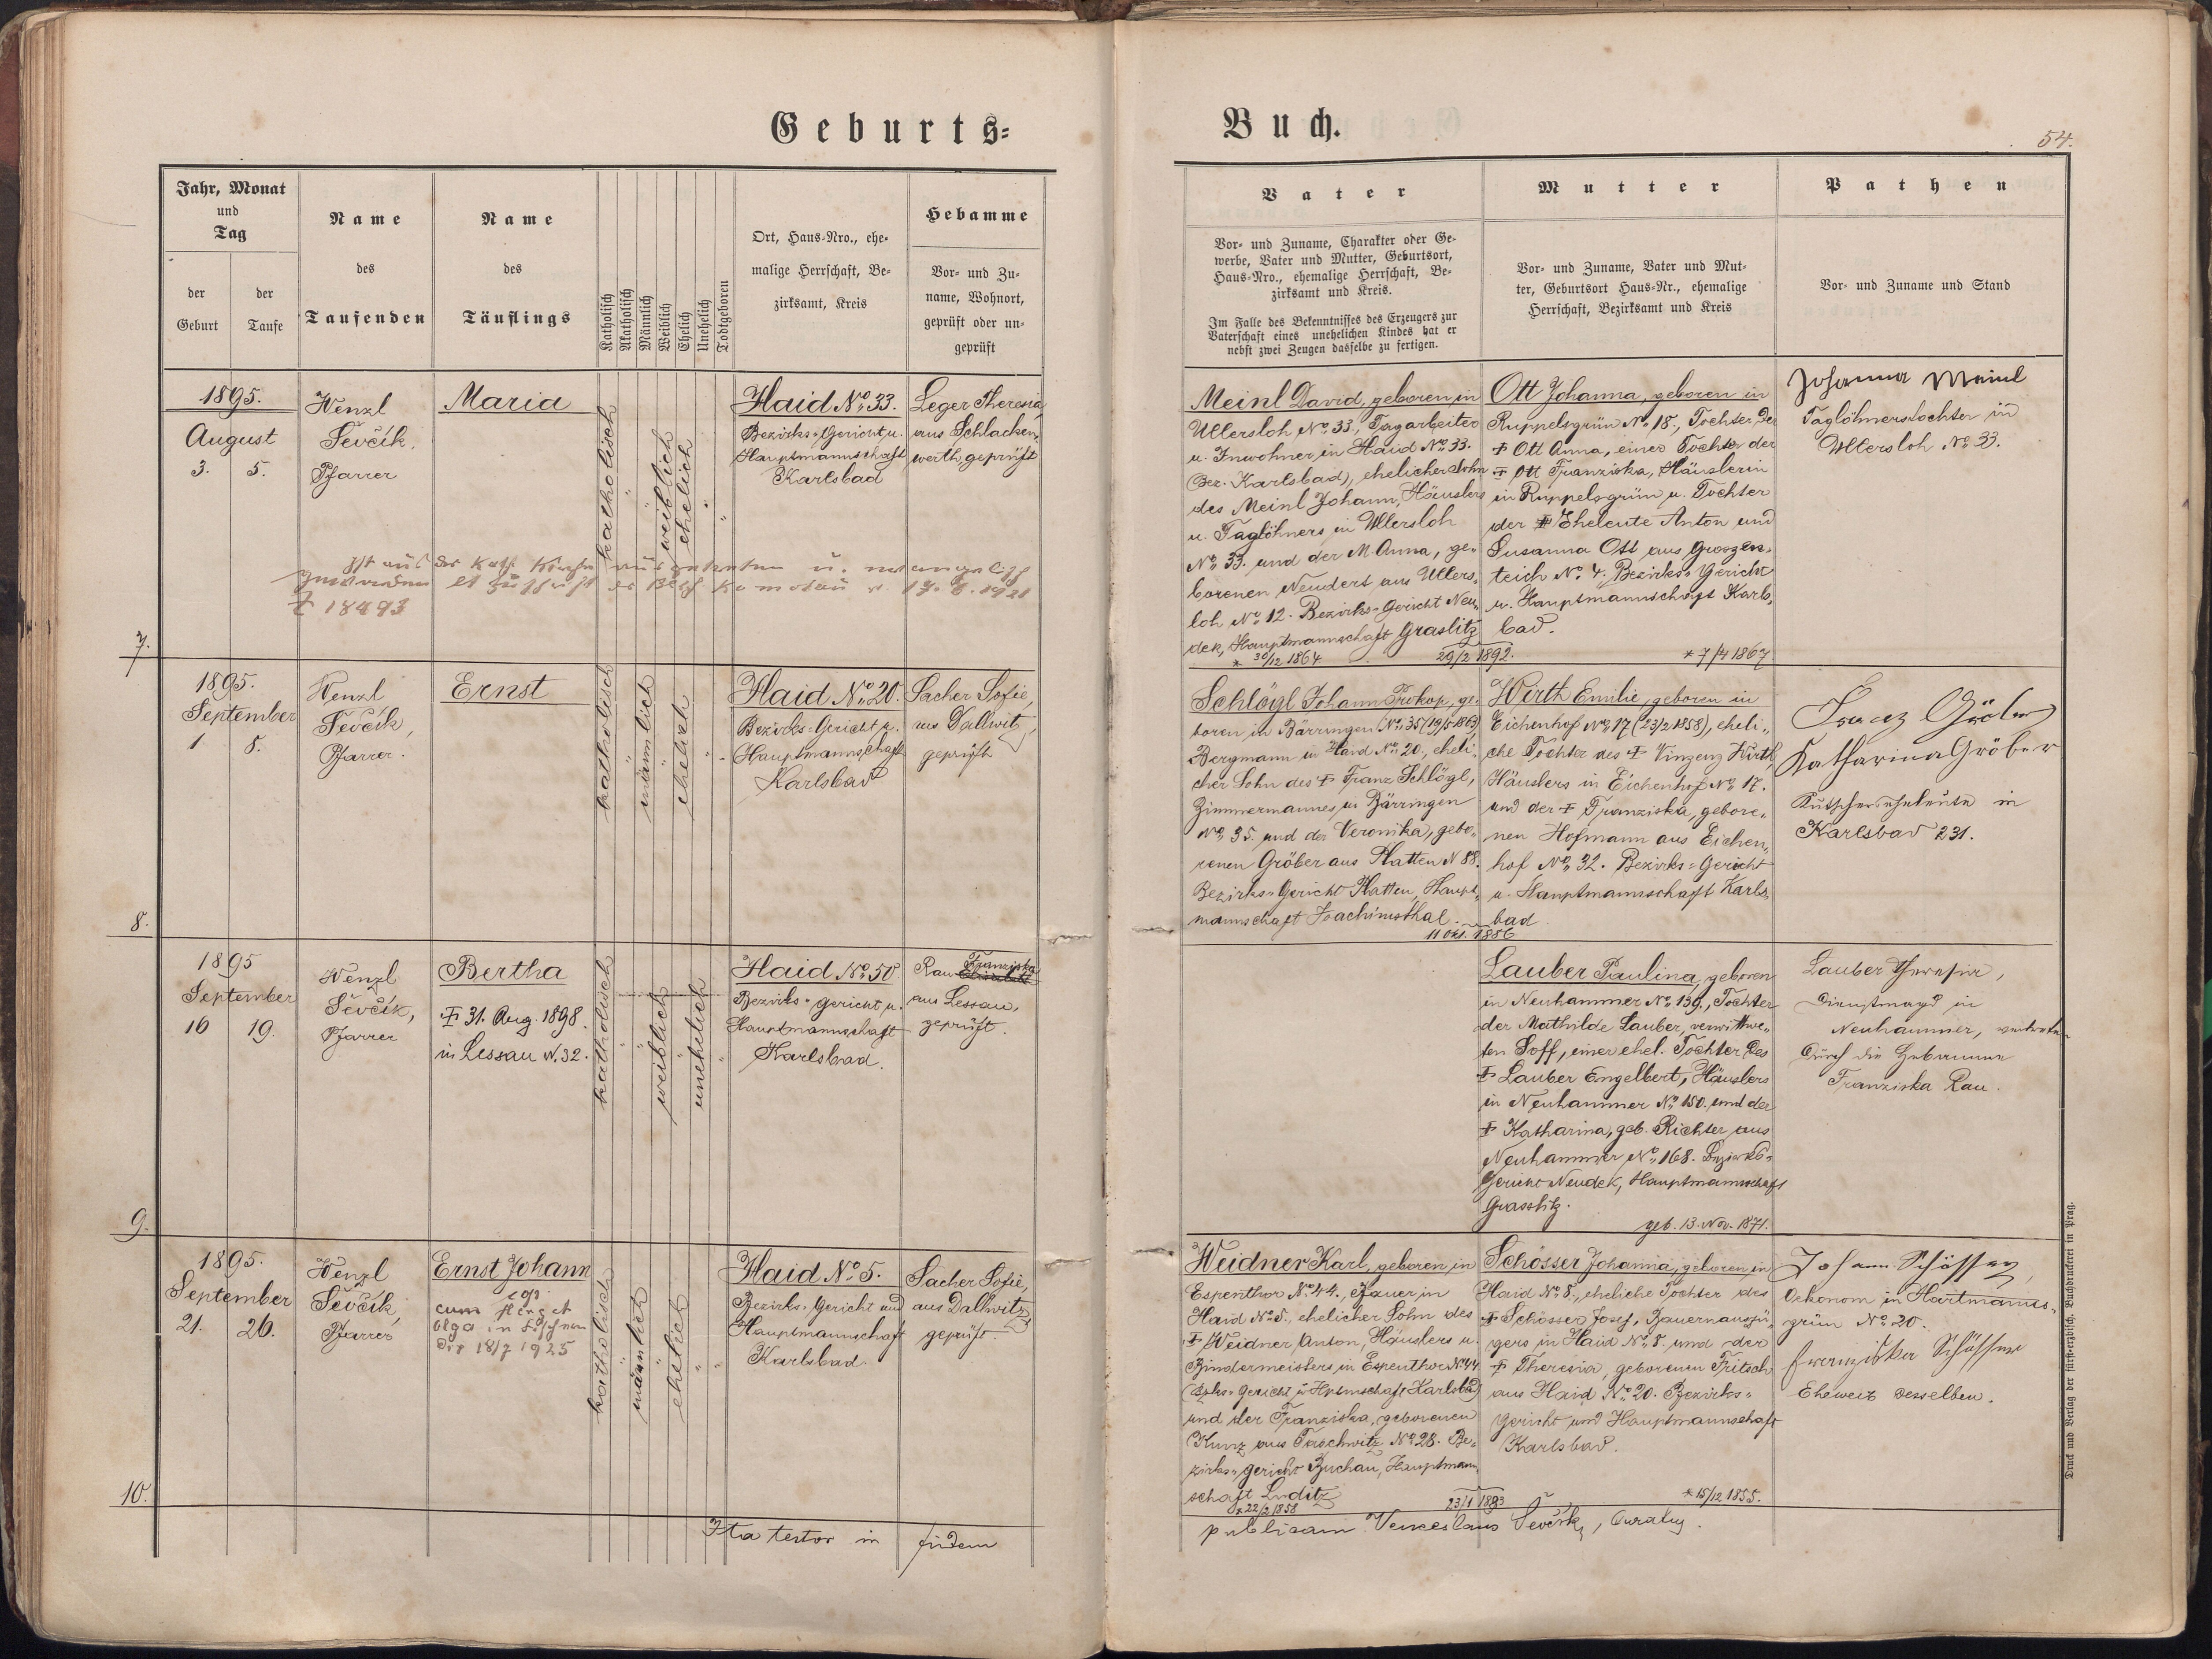 Geburts-
Buch.
54.
Jahr, Monat
und
Tag
der
Geburt
der
Taufe
Name
des
Taufenden
Name
des
Täuflings
Katholisch
Akatholisch
Männlich
Weiblich
Ehelich
Unehelich
Todtgeboren
Ort, Haus-Nro., ehe-
malige Herrschaft, Be-
zirksamt, Kreis
Hebamme
Vor- und Zu-
name, Wohnort,
geprüft oder un-
geprüft
Vater
Vor- und Zuname, Charakter oder Ge-
werbe, Vater und Mutter, Geburtsort,
Haus-Nro., ehemalige Herrschaft, Be-
zirksamt und Kreis.
Im Falle des Bekenntnisses des Erzeugers zur
Vaterschaft eines unehelichen Kindes hat er
nebst zwei Zeugen dasselbe zu fertigen.
Mutter
Vor- und Zuname, Vater und Mut-
ter, Geburtsort Haus-Nr., ehemalige
Herrschaft, Bezirksamt und Kreis
Pathen
Vor- und Zuname und Stand
7.
1895.
August
3. 5.
Wenzl
Ševčík,
Pfarrer
Maria
katholisch
weiblich
ehelich
Haid No. 33.
Bezirks-Gericht u.
Hauptmannschaft
Karlsbad
Leger Theresia
aus Schlacken-
werth, geprüft
Ist aus der kath. Kirche ausgetreten u.
Komotau v. 17.6.1921
Z 18493
Meinl David, geboren in
Ullersloh No. 33., Tagarbeiter
u. Inwohner in Haid No. 33.
(Bez. Karlsbad), ehelicher Sohn
des Meinl Johann, Häuslers
u. Taglöhners in Ullersloh
No. 33. und der M. Anna, ge-
borenen Neudert aus Ullers-
loh No. 12. Bezirks-Gericht Neu-
dek, Hauptmannschaft Graslitz
* 30/12 1864
29/2 1892.
Ott Johanna, geboren in
Ruppelsgrün No. 18., Tochter der
† Ott Anna, einer Tochter der
† Ott Franziska, Häuslerin
in Ruppelsgrün u. Tochter
der † Eheleute Anton und
Susanna Ott aus Grossen-
teich No. 4. Bezirks-Gericht
u. Hauptmannschaft Karls-
bad.
* 7/4 1867
Johanna Meinl
Taglöhnerstochter in
Ullersloh No. 33.
8.
1895.
September
1 8.
Wenzl
Ševčík,
Pfarrer.
Ernst
katholisch
männlich
ehelich
Haid No. 20.
Bezirks-Gericht u.
Hauptmannschaft
Karlsbad
Sacher Sofie,
aus Dallwitz,
geprüft
Schlögl Johann Prokop, ge-
boren in Bärringen No. 35 (19/5 1863)
Bergmann in Haid No. 20., eheli-
cher Sohn des † Franz Schlögl,
Zimmermannes in Bärringen
No. 35. und der Veronika, gebo-
renen Gröber aus Platten N 88.
Bezirks-Gericht Platten, Haupt-
mannschaft Joachimsthal.
11 Okt. 1886
Wirth Emilie, geboren in
Eichenhof No. 17 (23/2 1858), eheli-
che Tochter des † Vinzenz Wirth,
Häuslers in Eichenhof No. 17.
und der † Franziska, gebore-
nen Hofmann aus Eichen-
hof No. 32. Bezirks-Gericht
u. Hauptmannschaft Karls-
bad
Franz Gröber
Katharina Gröber
Kutscherseheleute in
Karlsbad 231.
9.
1895
September
16 19.
Wenzl
Ševčík,
Pfarrer
Bertha
† 31. Aug. 1898.
in Lessau N. 32.
katholisch
weiblich
unehelich
Haid No. 50
Bezirks-Gericht u.
Hauptmannschaft
Karlsbad.
Franziska
Rau Elisabeth
aus Lessau,
geprüft.
Lauber Paulina, geboren
in Neuhammer No. 139., Tochter
der Mathilde Lauber, verwittwe-
ten Soff, einer ehel. Tochter des
† Lauber Engelbert, Häuslers
in Neuhammer No. 150. und der
† Katharina, geb. Richter aus
Neuhammer No. 168. Bezirks-
Gericht Neudek, Hauptmannschaft
Grasslitz.
geb. 13. Nov. 1871.
Lauber Theresia,
Dienstmagd in
Neuhammer, vertreten
durch die Hebamme
Franziska Rau.
10.
1895.
September
21. 26.
Wenzl
Ševčík,
Pfarrer
Ernst Johann
cop.
cum
Olga in
18/7 1925
katholisch
männlich
ehelich
Haid No. 5.
Bezirks-Gericht und
Hauptmannschaft
Karlsbad.
Sacher Sofie,
aus Dallwitz
geprüft.
Weidner Karl, geboren in
Espenthor No. 44., Bauer in
Haid No. 5., ehelicher Sohn des
† Weidner Anton, Häuslers u.
Bindermeisters in Espenthor No. 44
(Bzks-Gericht u. Hptmschaft Karlsbad)
und der Franziska, geborenen
Kunz aus Taschwitz No. 28. Be-
zirks-gericht Buchau, Hauptmann-
schaft Luditz
* 22/2 1858
23/1 1883
Schösser Johanna, geboren in
Haid No. 8., eheliche Tochter des
† Schösser Josef, Bauernauszü-
gers in Haid No. 8. und der
† Theresia, geborenen Fritsch
aus Haid No. 20. Bezirks-
gericht und Hauptmannschaft
Karlsbad.
* 15/12 1855.
Johann Schösser,
Oekonom in Hartmanns-
grün No. 20.
Franziska Schösser
Eheweib desselben.
Ita testor in fidem
publicam Venceslaus Ševčík, Curatus.
Druck und Verlag der fürst-erzbisch. Buchdruckerei in Prag.